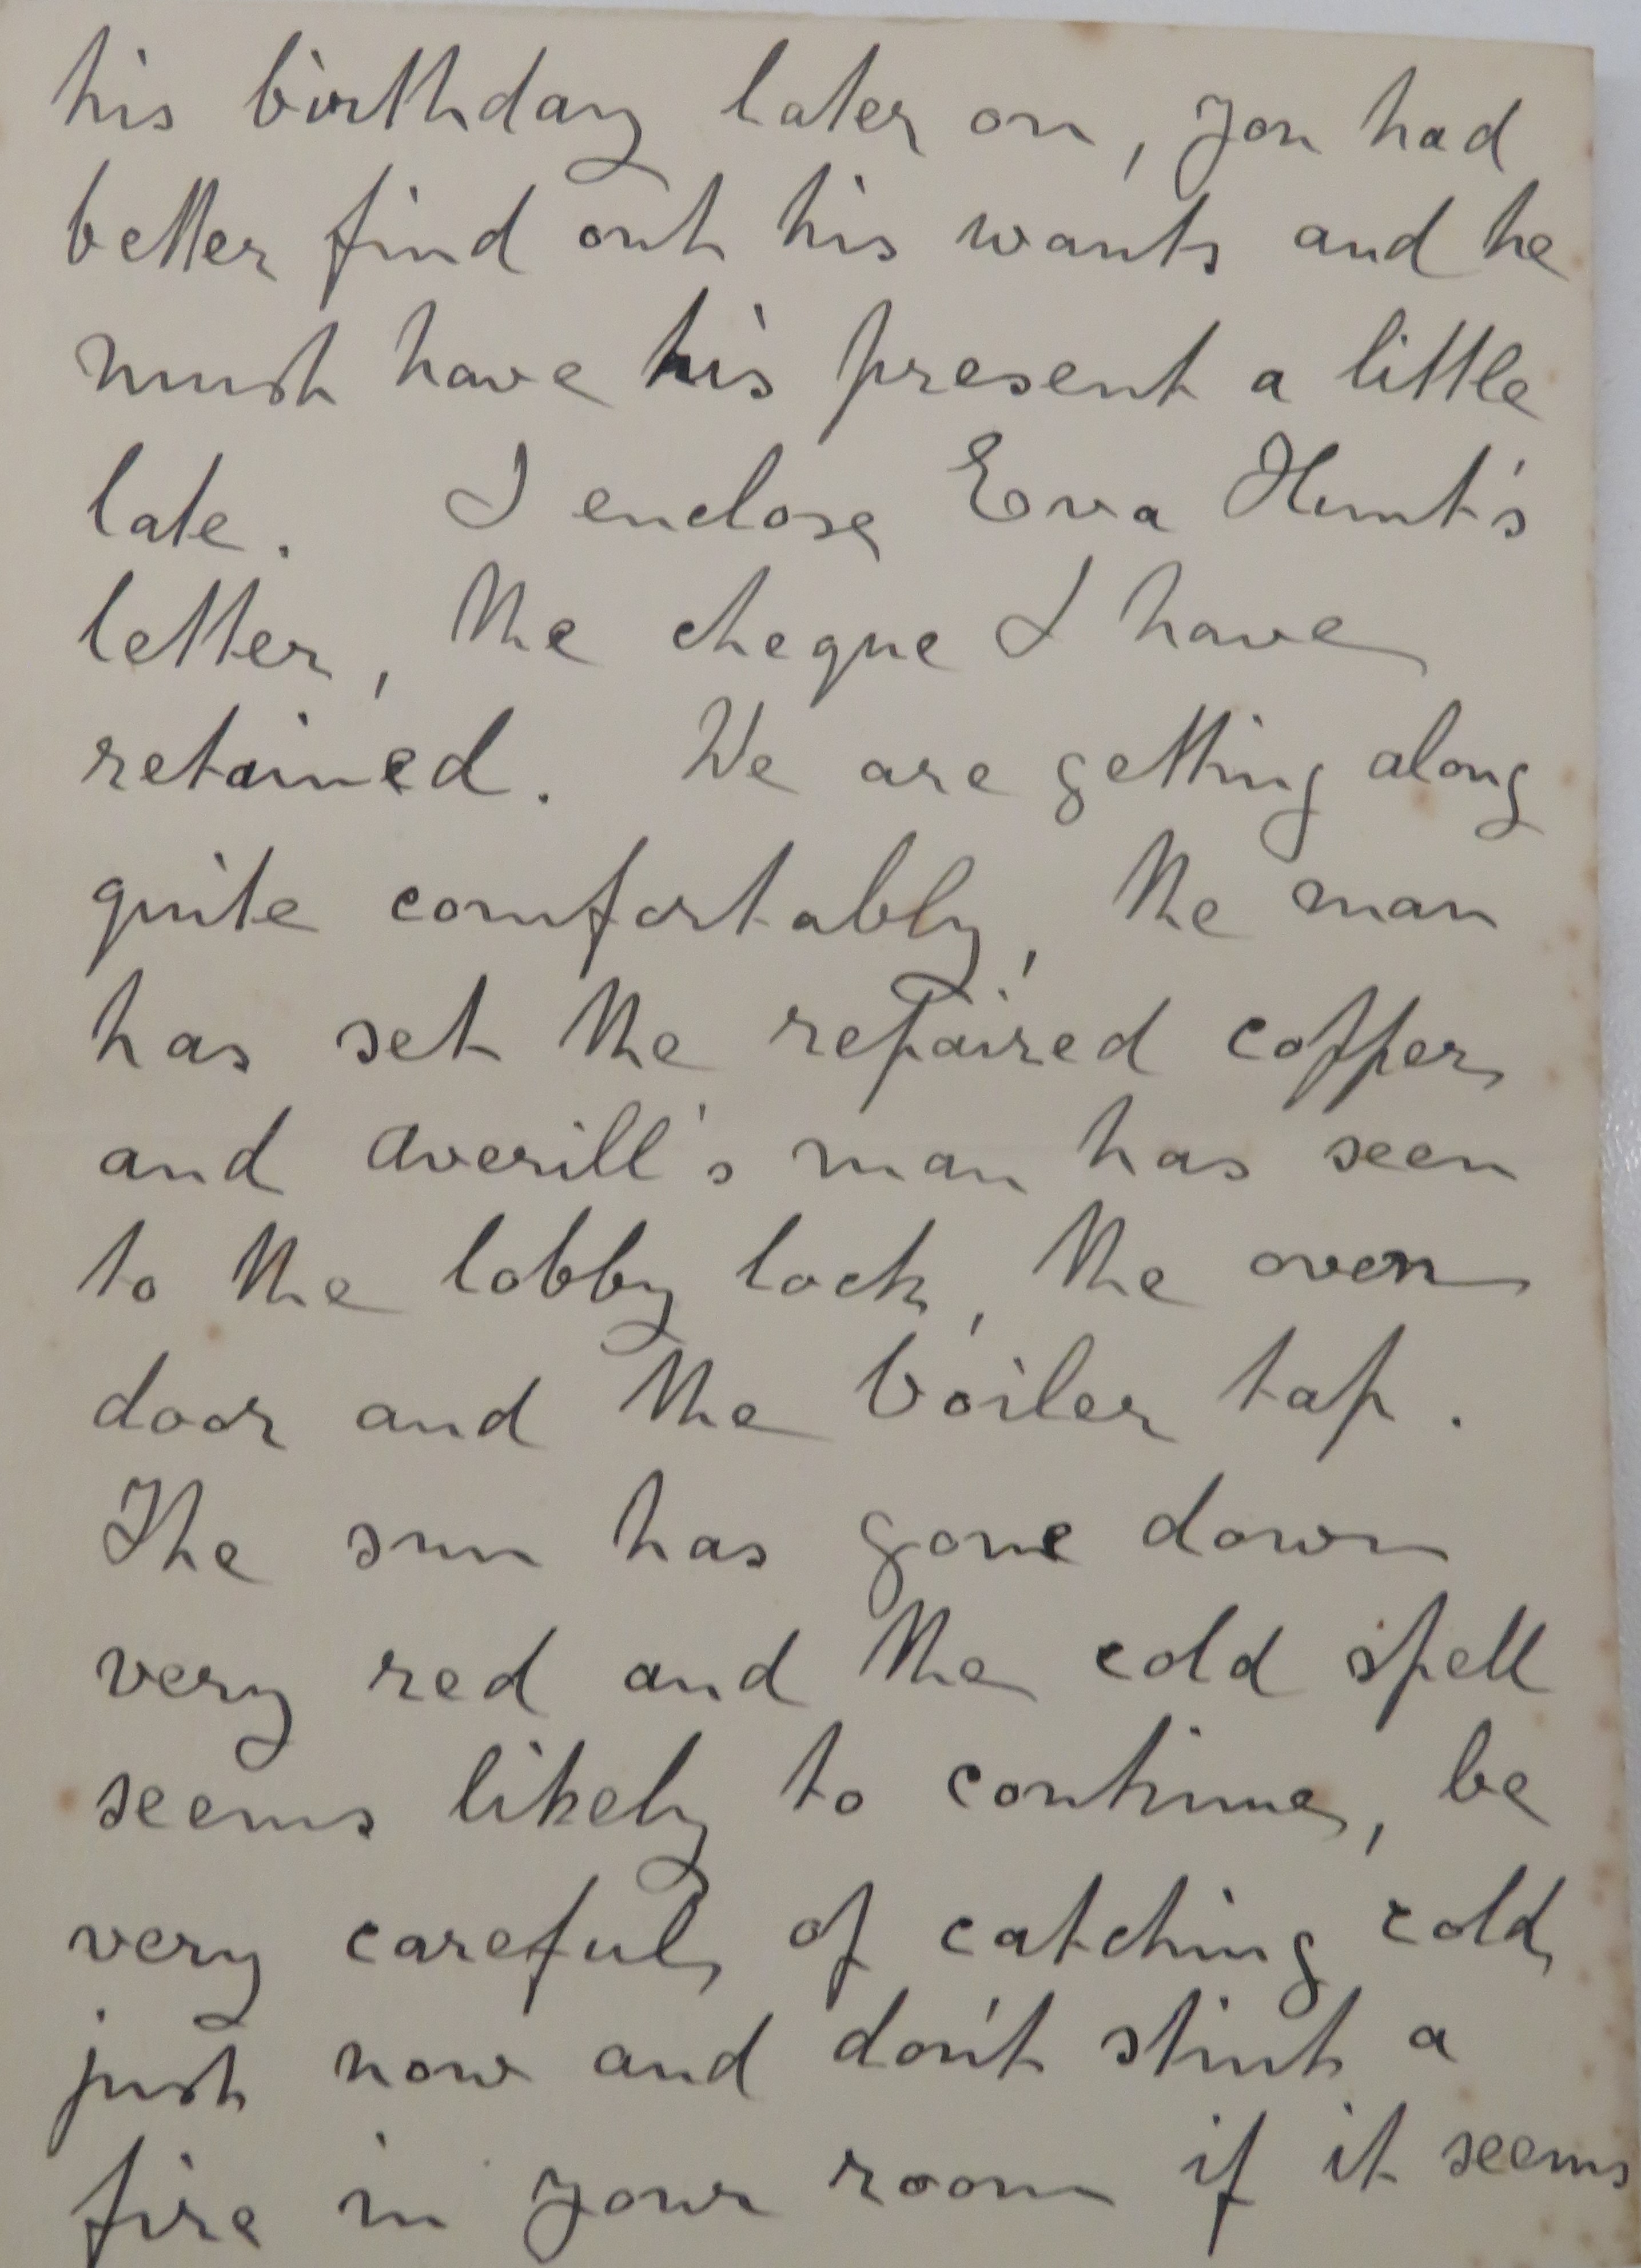 his birthday later on, you had
better find out his wants and he
must have his present a little
late. I enclose Eva Hunt's
letter, the cheque I have
retained. We are getting along
quite comfortably, the man
has set the repaired copper
and Averill's man has seen
to the lobby lock, the oven
door and the boiler tap.
The sun has gone down
very red and the cold spell
seems likely to continue, be
very careful of catching cold
just now and don't stint a
fire in your room if it seems